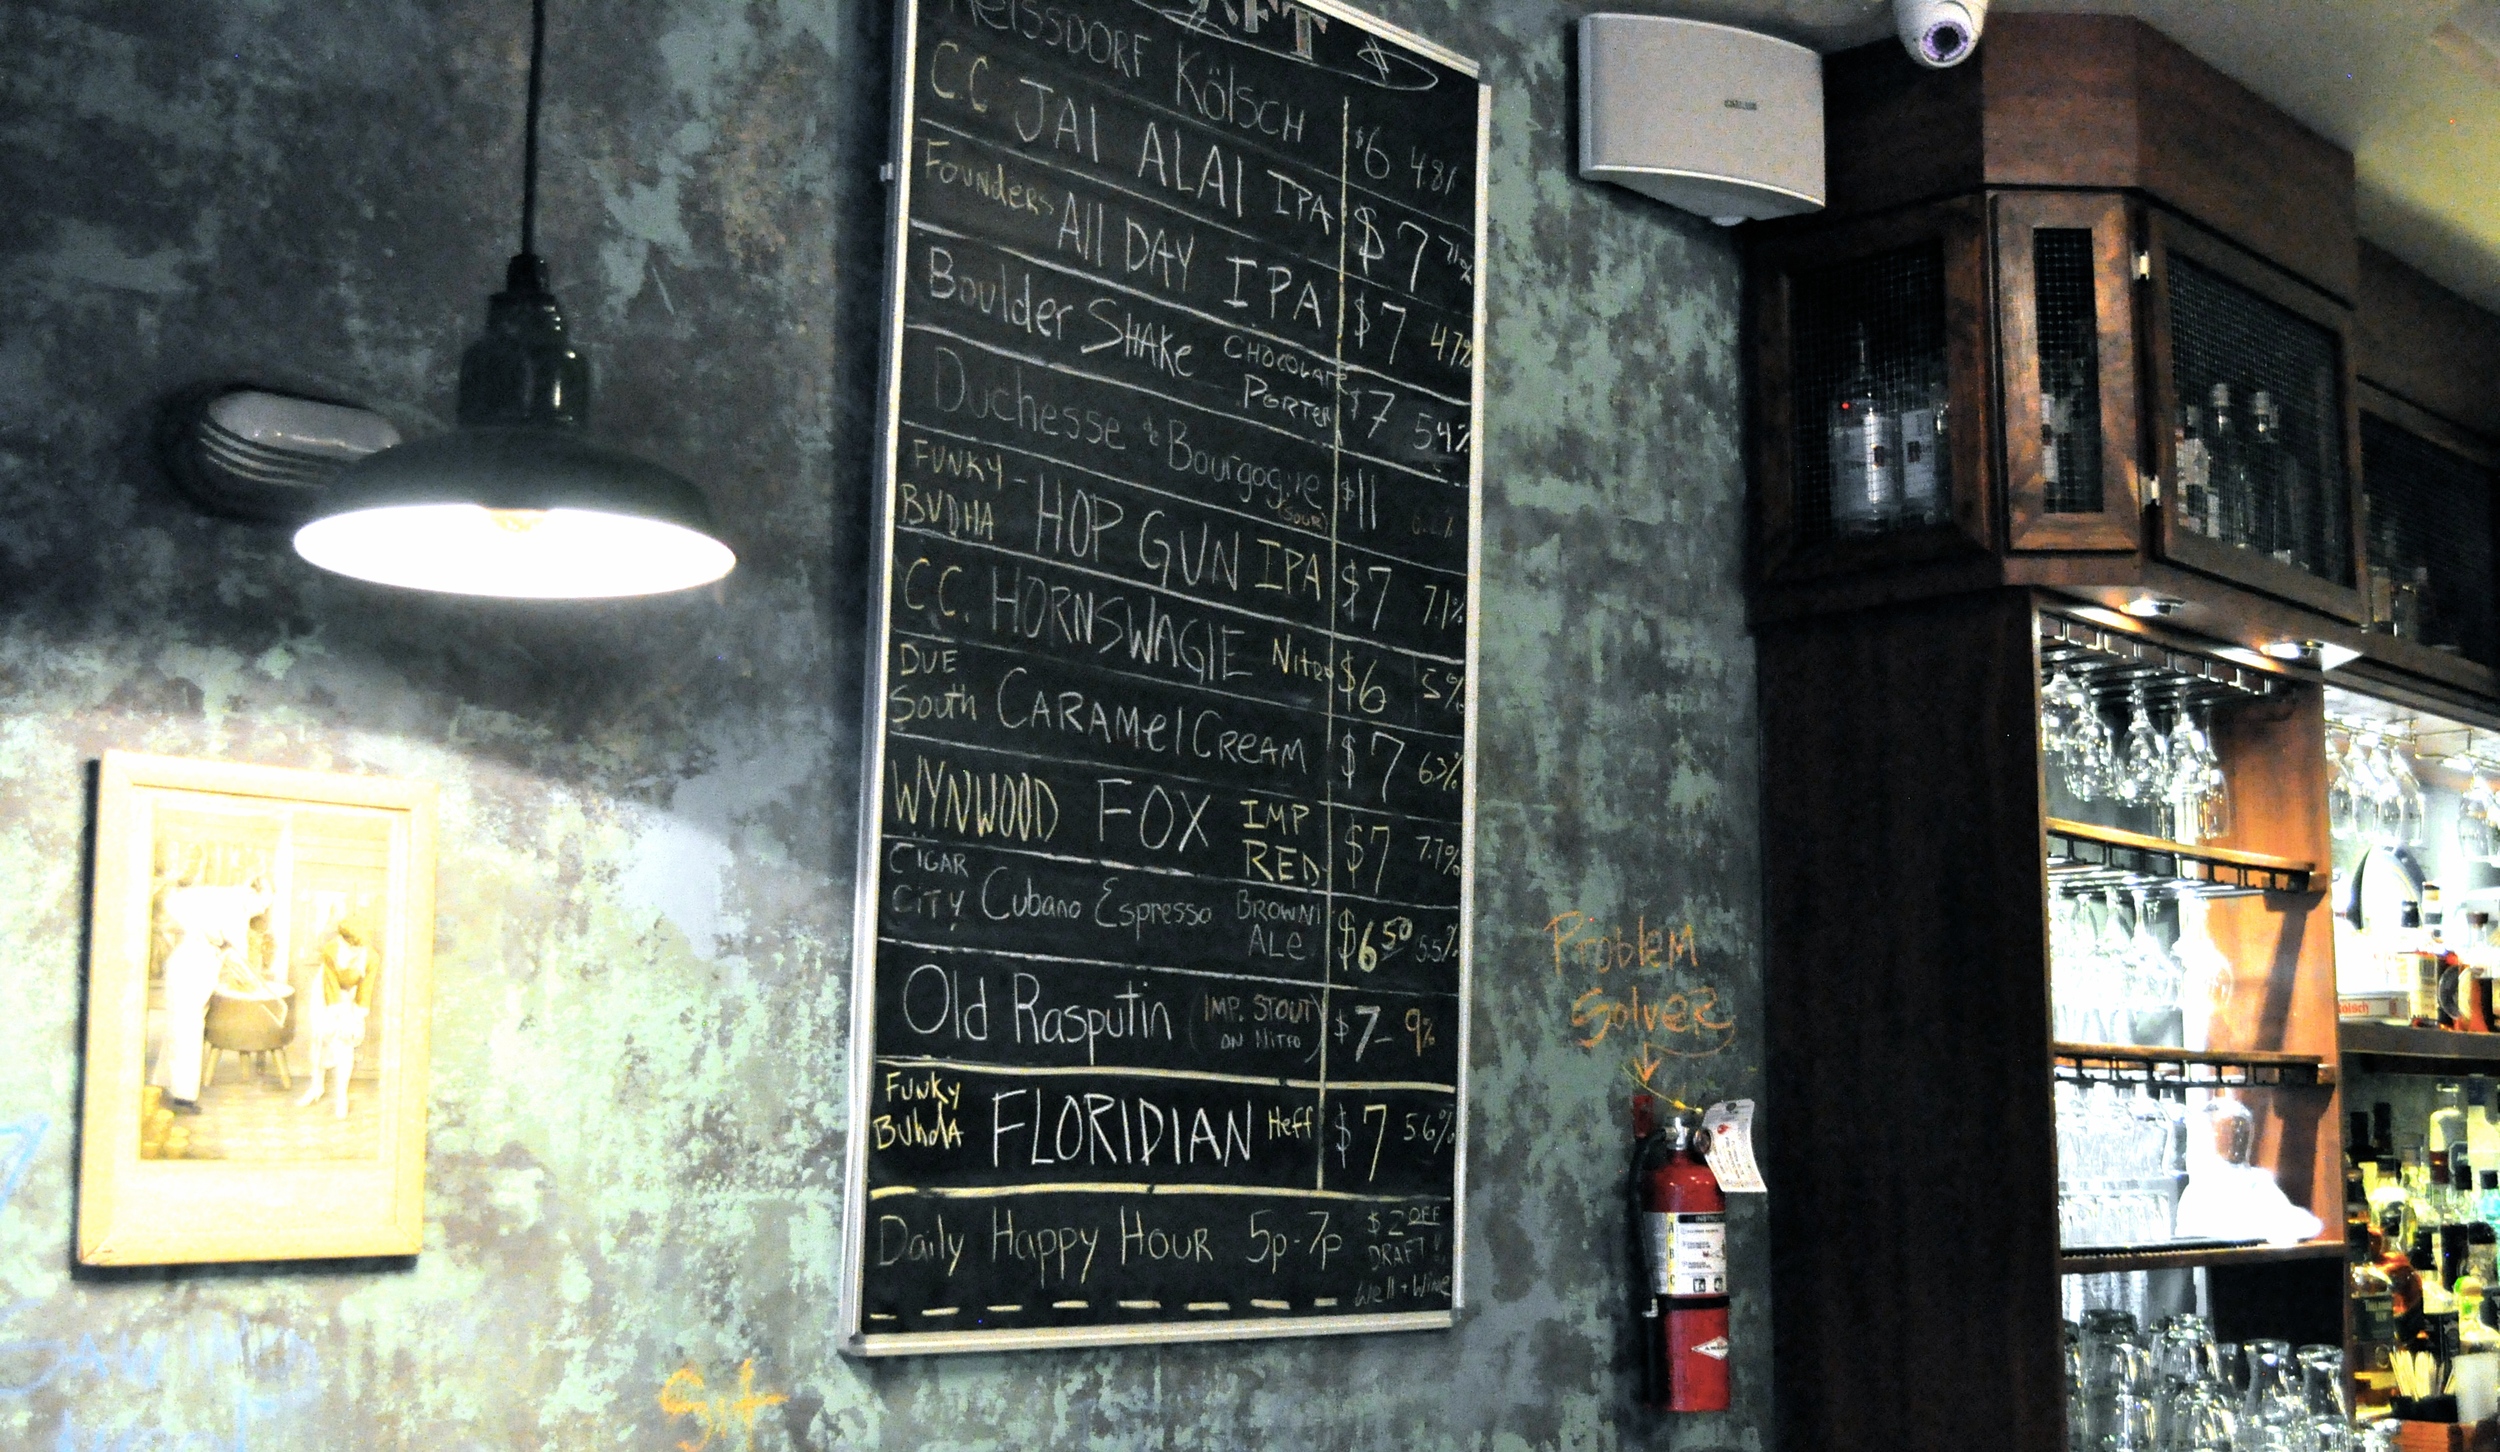 Kölsch $6 4.8%
C.C JAI ALAI IPA $7
Founders All DAY IPA $7 4.7%
Boulder SHAKe CHOCOLATE
PORTER $7 5.4%
Duchesse d Bourgogne $11
(SOUR)
FUNKY-
BUDHA HOP GUN IPA $7 7.1%
C.C. HORNSWAGlE Nitro $6 5%
DUE
South CARAMel CReAM $7 6.3%
WYNWOOD FOX IMP
RED $7 7.7%
CIGAR
CITY Cubano Espresso BROWN
ALe $6 50 5.5%
Old Rasputin (IMP. STOUT
ON NITRO) $7- 9%
FUNKY
BUhdA FLORIDIAN Heff $7 5.6%
Daily Happy Hour 5p-7p $2 OFF
DRAFT
Well + Wine
Problem
Solver
Sit